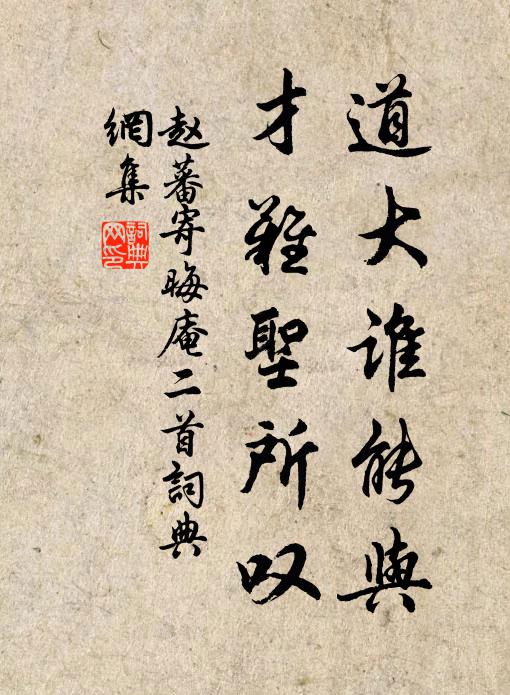 道大谁能與
才難聖所叹
赵蕃寄晦庵二首詞典
網集
詞典
网印